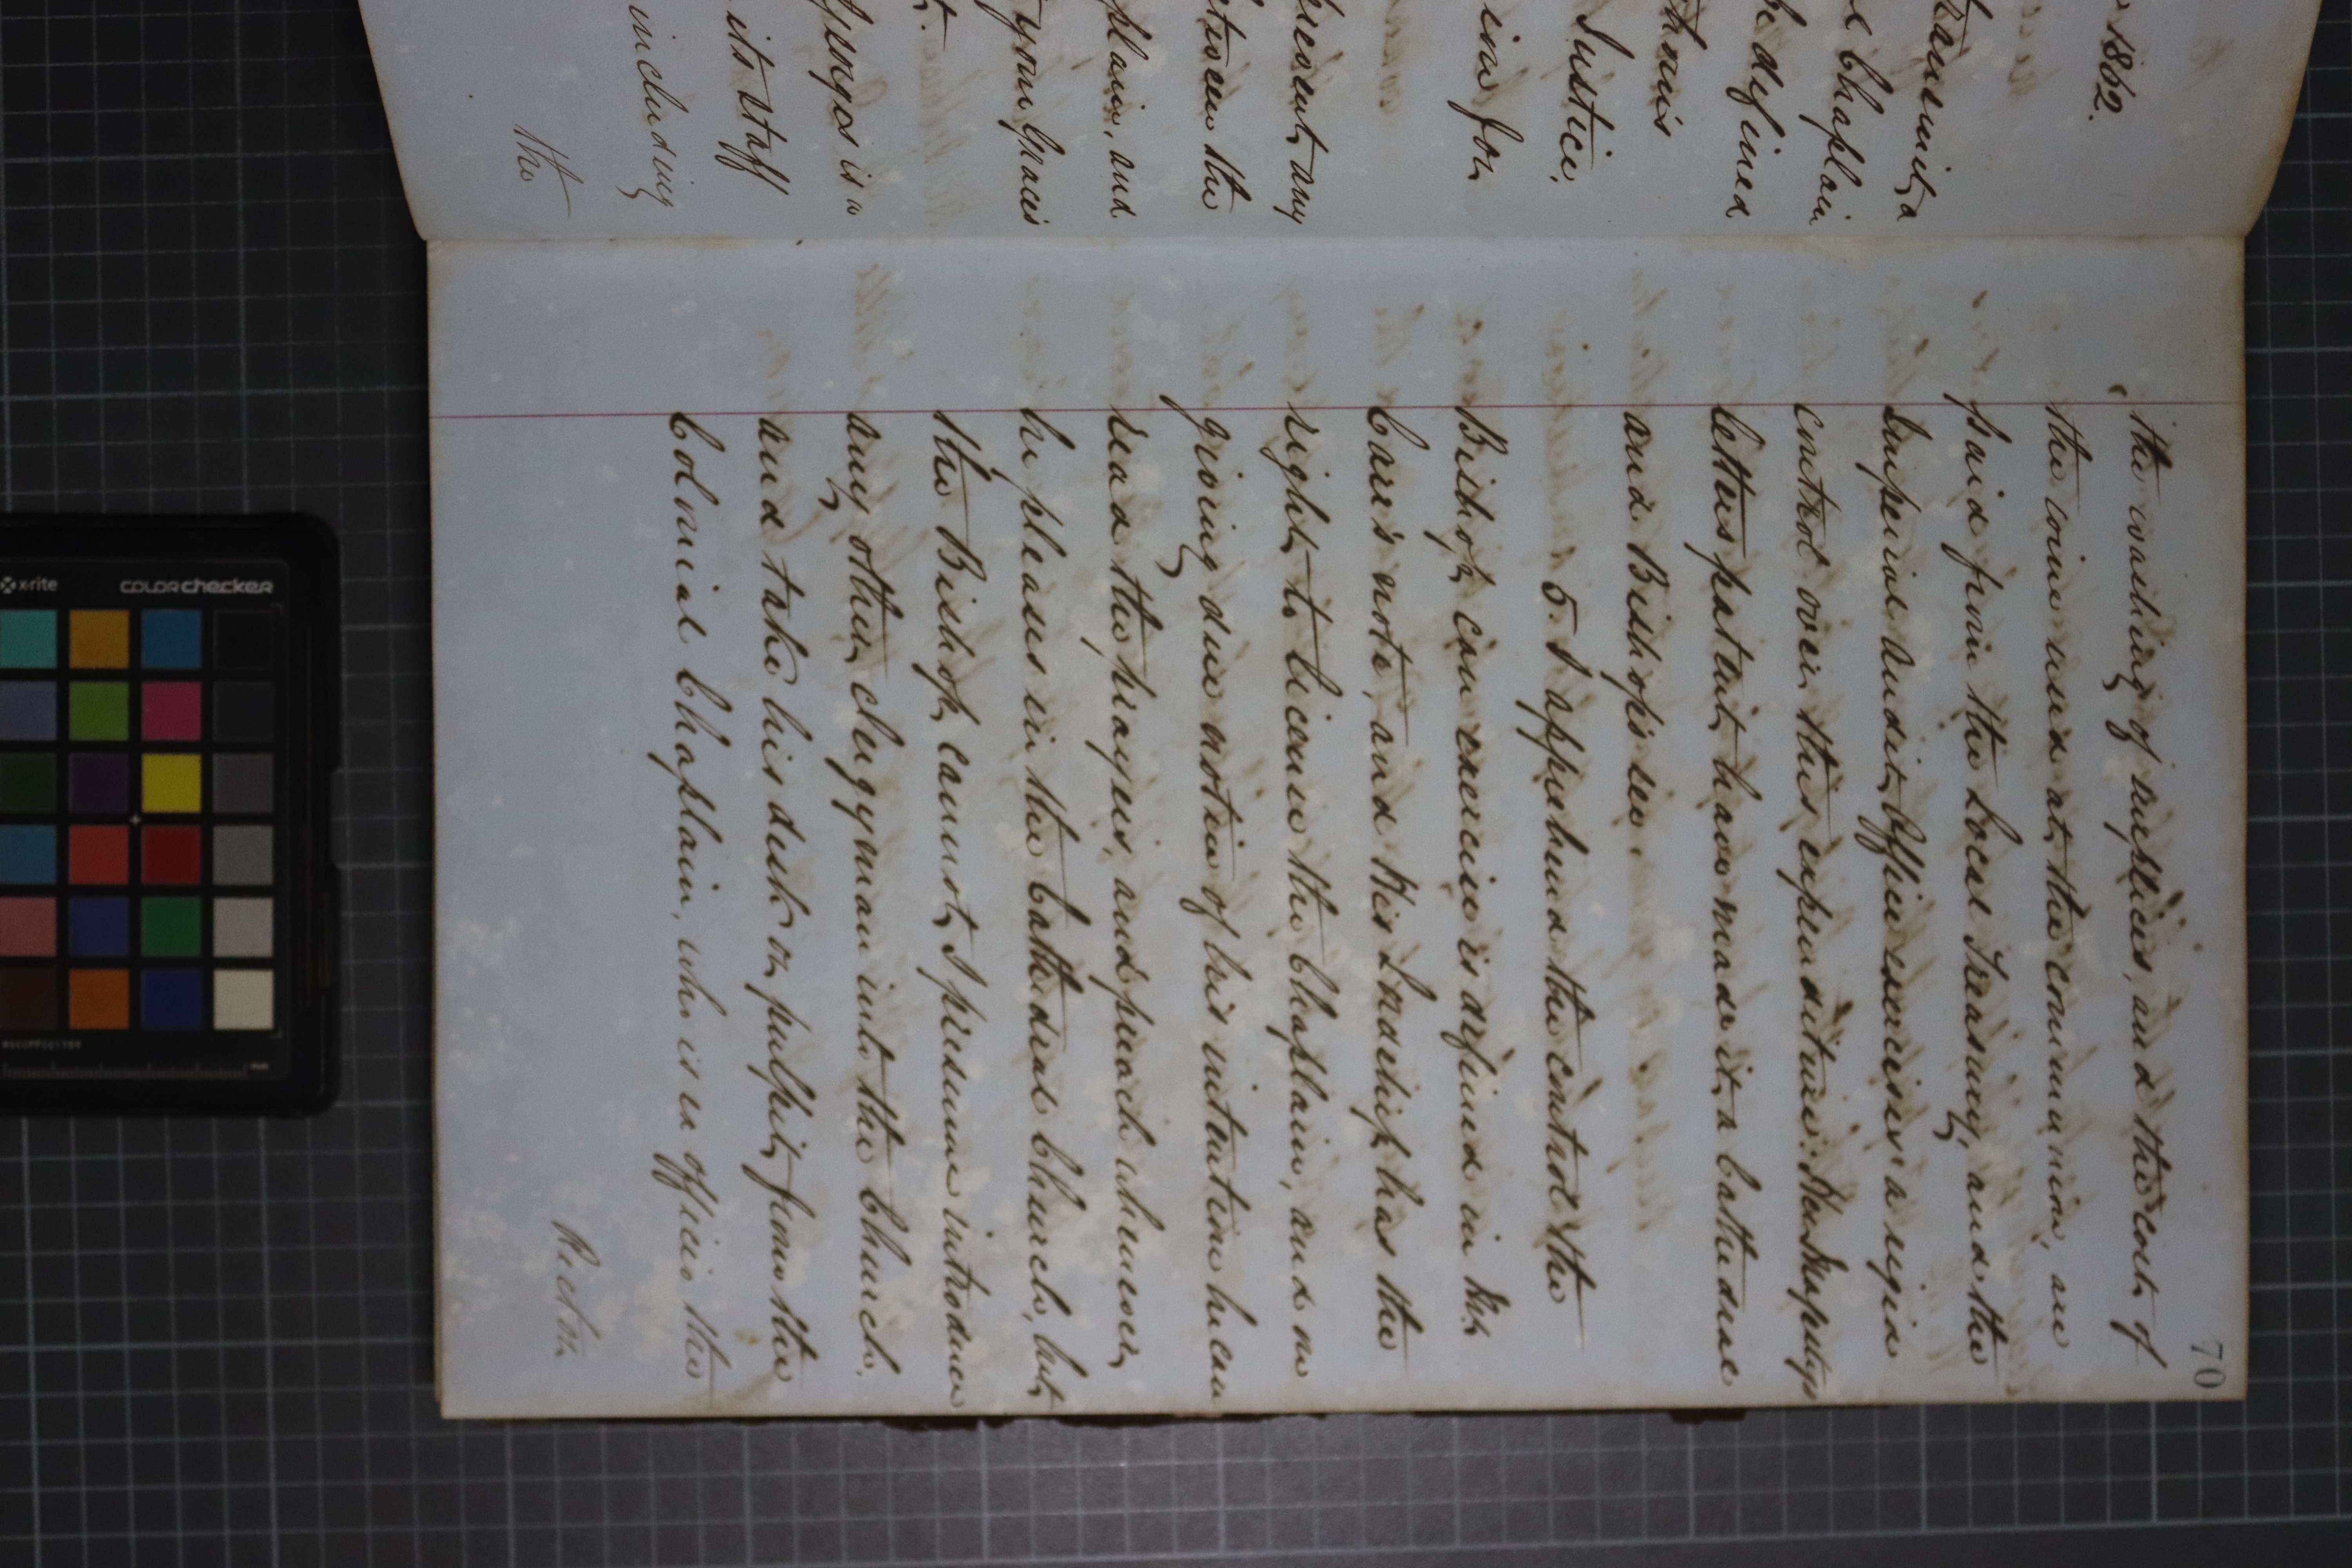 1862.
transmit, a
Chaplain
be defined
Justice,
in for
present, any
between the
plain, and
your Grace's
St George's is a
its staff
including
the
70
the washing of surplices, and the cost of
the wine used at the communion, are
paid from the Local Treasury, and the
Imperial Audit Office exercises a rigid
control over this expenditure. Her Majesty's
letters patent have made it a Cathedral
and Bishop's see.
5. I apprehend the control the
Bishop can exercise is defined in Mr.
Carr's note, and His Lordship has the
right to license the Chaplain, and on
giving due notice of his intention he can
read the prayers, and preach whenever
he pleases in the Cathedral Church, but
the Bishop cannot, I presume introduce
any other clergyman into the Church,
and take his desk or pulpit from the
Colonial Chaplain, who is ex officio the
Rector